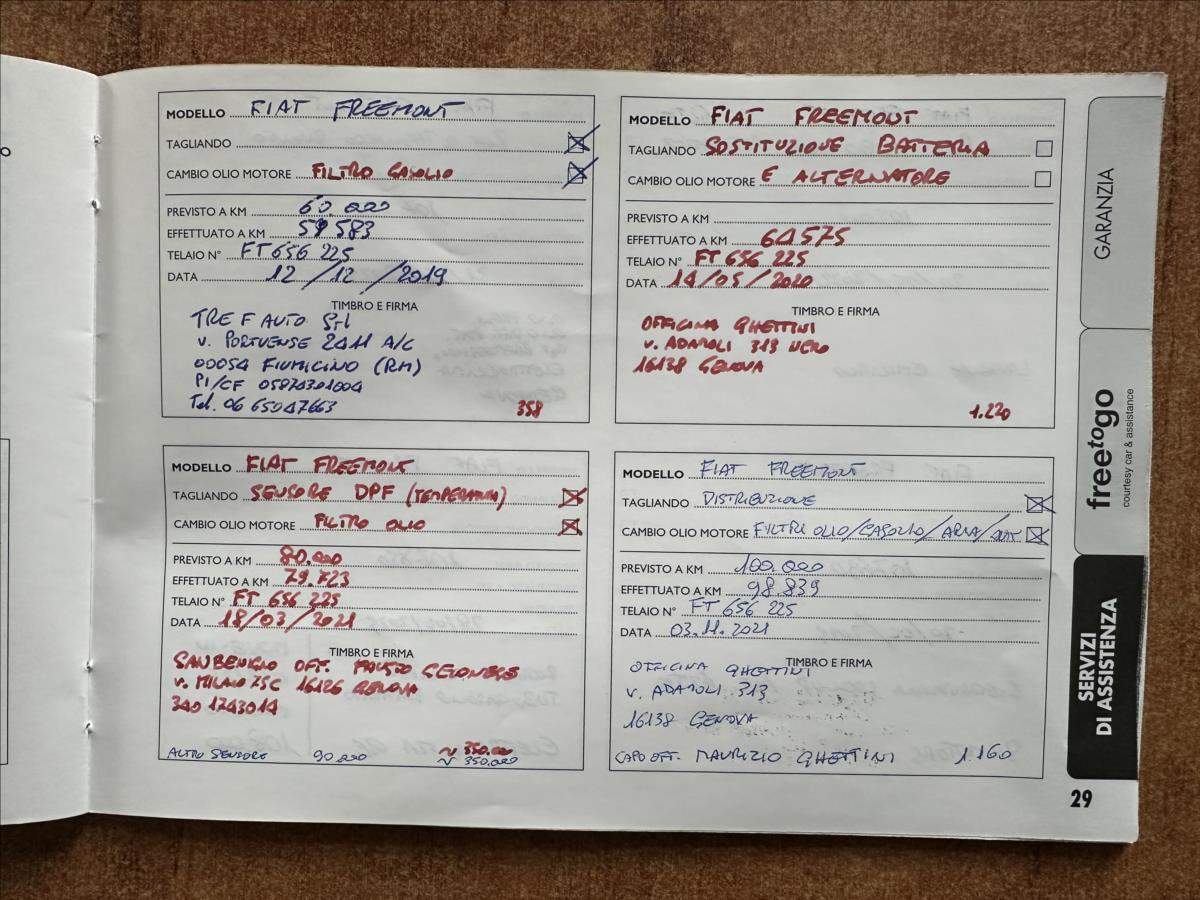 MODELLO FIAT FREEMONT
TAGLIANDO
CAMBIO OLIO MOTORE FILTRO GASOLIO
PREVISTO A KM 60.000
EFFETTUATO A KM 59583
TELAIO N° FT 656 225
DATA 12/12/2019
TIMBRO E FIRMA
TRE F AUTO Srl
V. PORTUENSE 2411 A/C
00054 FIUMICINO (RM)
PI/CF 05874301004
Tel. 06 65047663
358
MODELLO FIAT FREEMONT
TAGLIANDO SOSTITUZIONE BATTERIA
CAMBIO OLIO MOTORE E ALTERNATORE
PREVISTO A KM
EFFETTUATO A KM 61575
TELAIO N° FT 656 225
DATA 14/05/2020
TIMBRO E FIRMA
OFFICINA GHETTINI
V. ADAMOLI 313 NERO
16138 GENOVA
1.220
MODELLO FIAT FREEMONT
TAGLIANDO SENSORE DPF (TEMPERATURA)
CAMBIO OLIO MOTORE FILTRO OLIO
PREVISTO A KM 80.000
EFFETTUATO A KM 79.723
TELAIO N° FT 656 225
DATA 18/03/2021
TIMBRO E FIRMA
SANBENIGNO OFF. FAUSTO
V. MILANO 75C 16126 GENOVA
340 1743014
ALTRO SENSORE 90.000
~ 350.00
~ 350.000
MODELLO FIAT FREEMONT
TAGLIANDO DISTRIBUZIONE
CAMBIO OLIO MOTORE FILTRI OLIO/GASOLIO/ARIA/
PREVISTO A KM 100.000
EFFETTUATO A KM 98.839
TELAIO N° FT 656 225
DATA 03.11.2021
TIMBRO E FIRMA
OFFICINA GHETTINI
V. ADAMOLI 313
16138 GENOVA
CAPO OFF. MAURIZIO GHETTINI 1.160
GARANZIA
freetogo
courtesy car & assistance
SERVIZI
DI ASSISTENZA
29